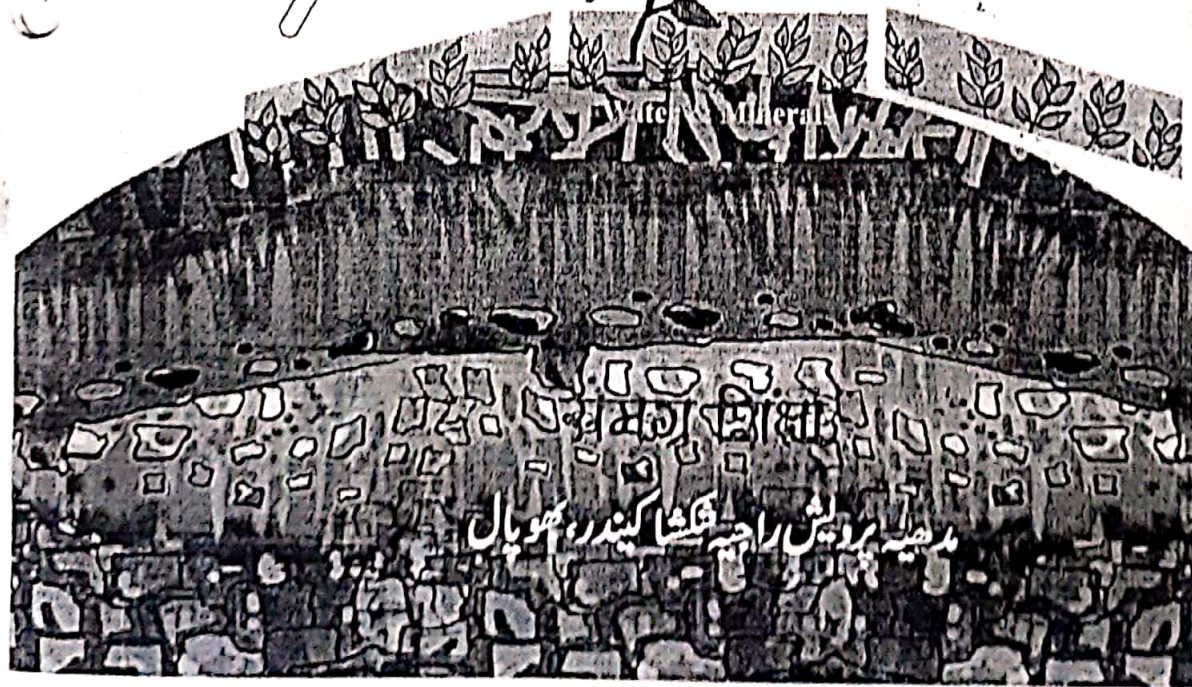 Water Minerals
समग्र शिक्षा
مدھیہ پردیش راجیہ شکشا کیندر، بھوپال